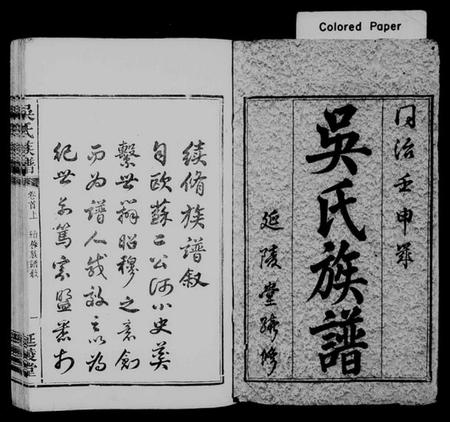 Colored Paper
同治壬申年
吳氏族譜
延陵堂續修
續脩族譜叙
自歐蘇二公沿小史奠
繫世辨昭穆之意創
而為譜人或效之以為
紀世系篤宗盟
吳氏族譜
卷首上
續修族譜叙
一
延陵堂